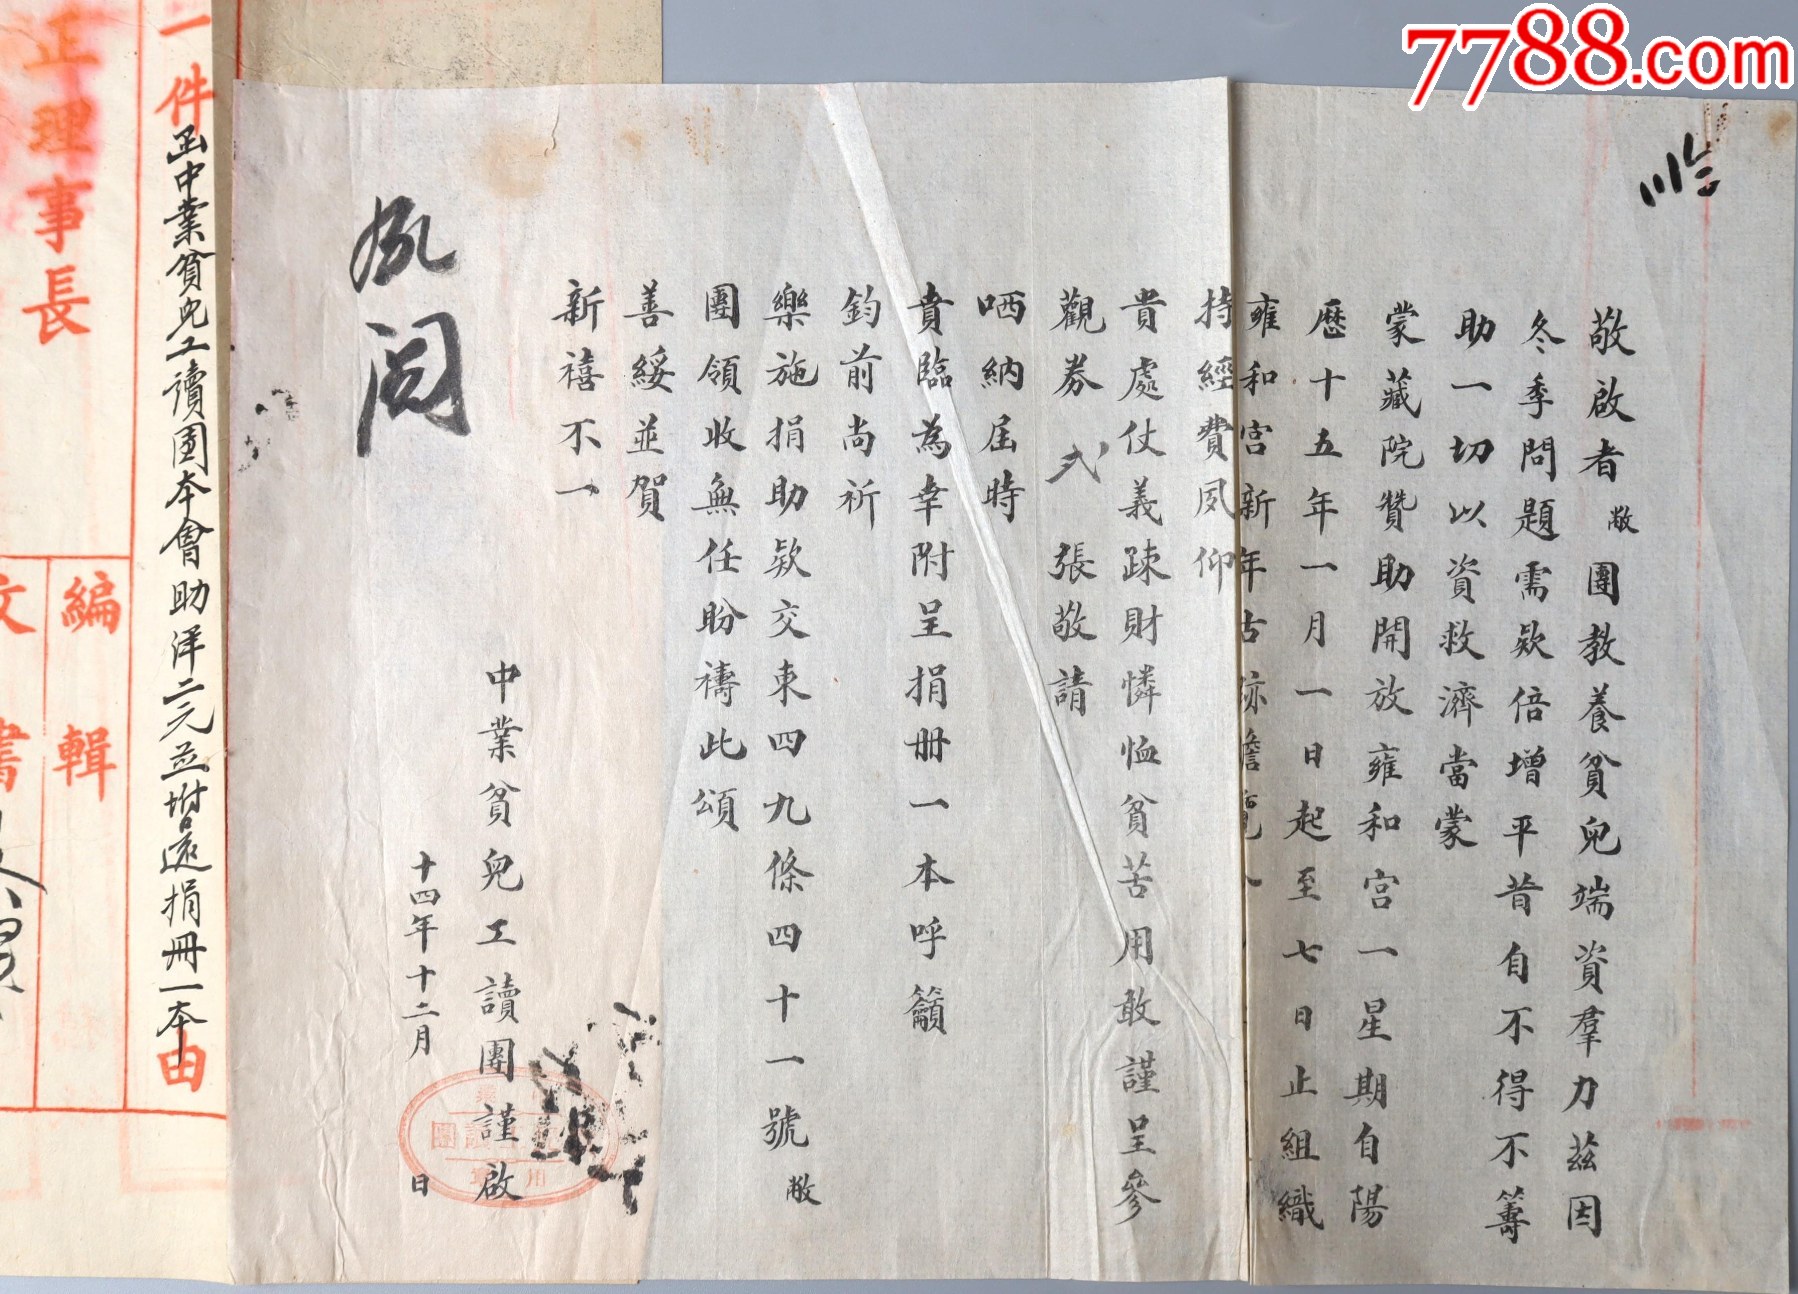 7788.com
敬啟者敝團教養貧兒端資羣力茲因
冬季問題需欵倍增平昔自不得不籌
助一切以資救濟當蒙
蒙藏院贊助開放雍和宮一星期自陽
歷十五年一月一日起至七日止組織
雍和宮新年古跡
持經費夙仰
貴處仗義疎財憐恤貧苦用敢謹呈參
觀券弍張敬請
哂納屆時
賁臨為幸附呈捐册一本呼籲
鈞前尚祈
樂施捐助欵交東四九條四十一號敝
團領收無任盼禱此頌
善綏並賀
新禧不一
中業貧兒工讀團謹啟
十四年十二月 日
閻
一件
函中業貧兒工讀團本會助洋二元並附還捐冊一本
由
正理事長
編輯
文書